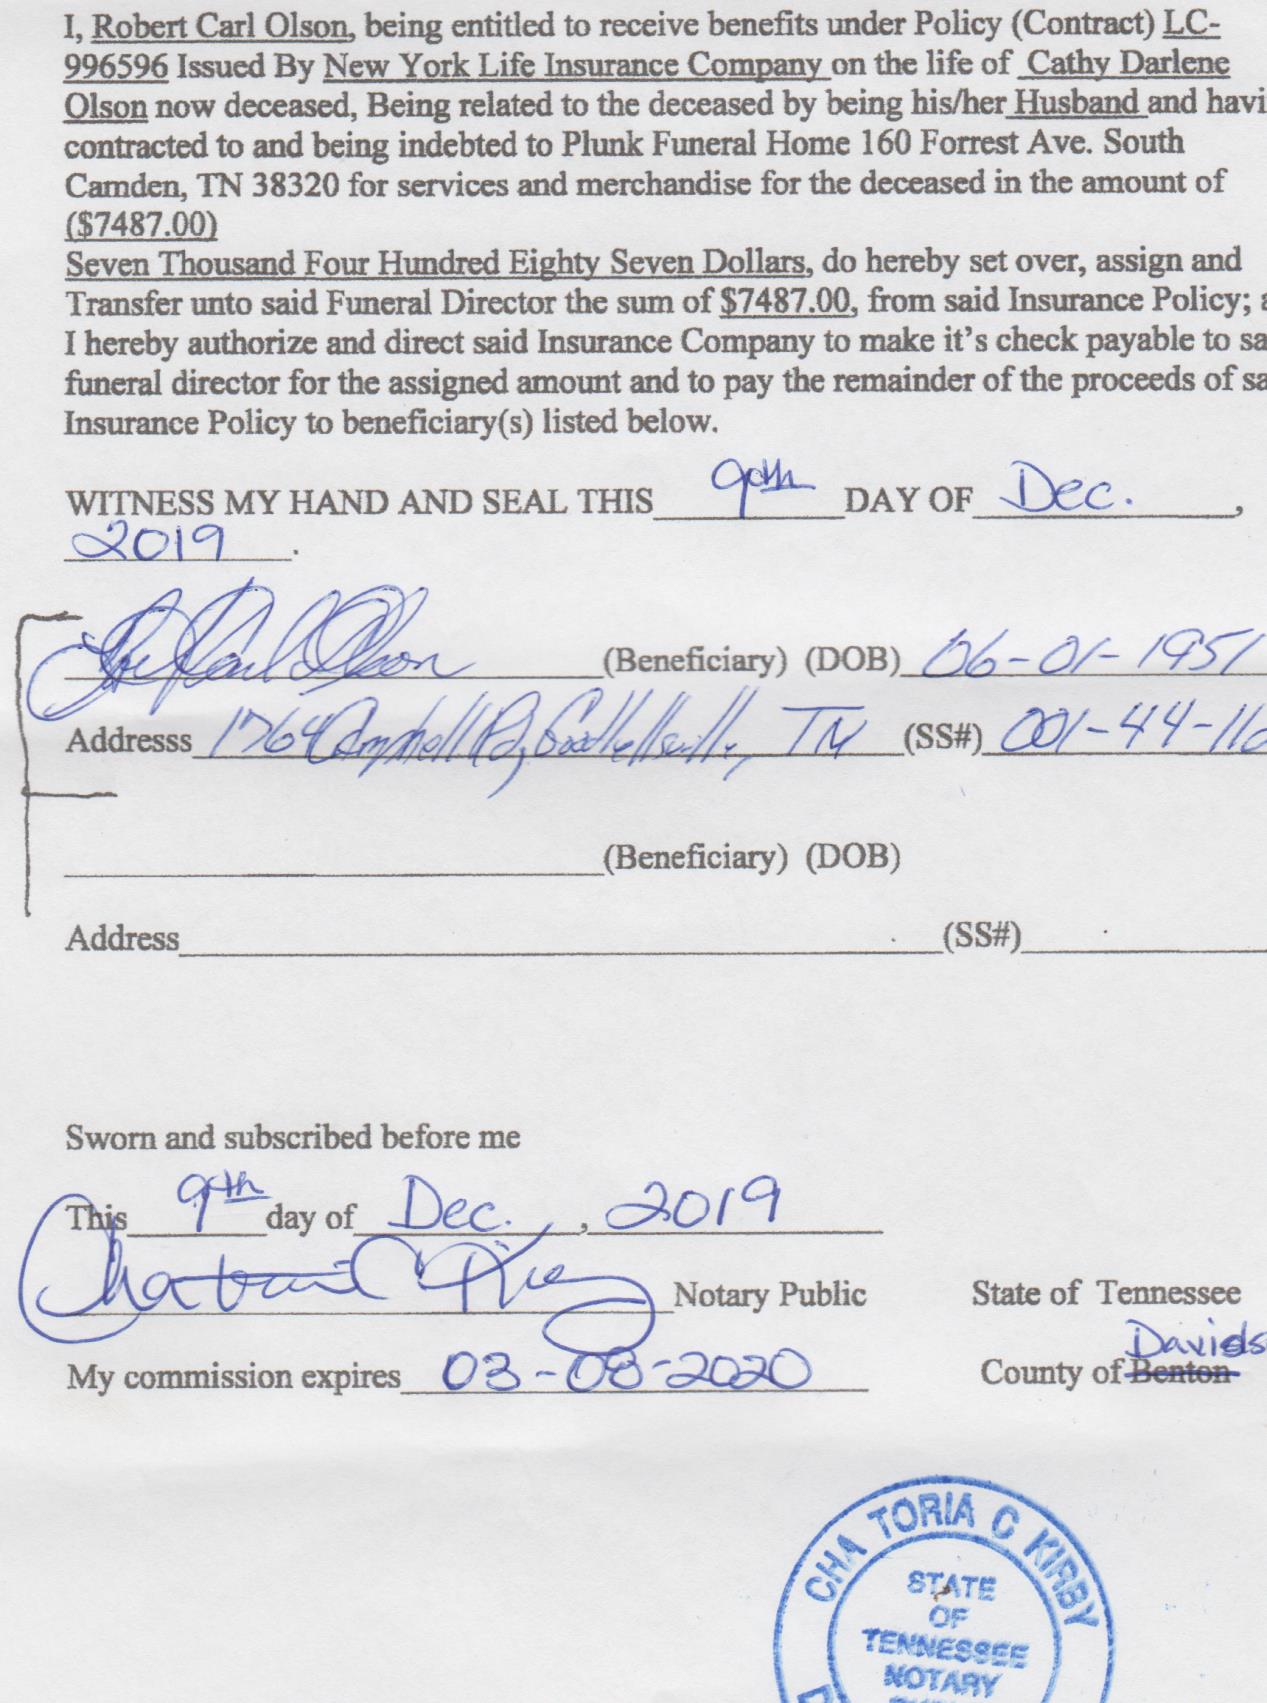 I, Robert Carl Olson, being entitled to receive benefits under Policy (Contract) LC-
996596 Issued By New York Life Insurance Company on the life of Cathy Darlene
Olson now deceased, Being related to the deceased by being his/her Husband and havi
contracted to and being indebted to Plunk Funeral Home 160 Forrest Ave. South
Camden, TN 38320 for services and merchandise for the deceased in the amount of
($7487.00)
Seven Thousand Four Hundred Eighty Seven Dollars, do hereby set over, assign and
Transfer unto said Funeral Director the sum of $7487.00, from said Insurance Policy; a
I hereby authorize and direct said Insurance Company to make it's check payable to sa
funeral director for the assigned amount and to pay the remainder of the proceeds of sa
Insurance Policy to beneficiary(s) listed below.
WITNESS MY HAND AND SEAL THIS 9th DAY OF Dec.,
2019.
Carl Olson (Beneficiary) (DOB) 06-01-1951
Addresss 1764 Campbell Rd, Goodlettsville, TN (SS#) 001-44-116
(Beneficiary) (DOB)
Address (SS#)
Sworn and subscribed before me
This 9th day of Dec., 2019
Notary Public State of Tennessee
Davids
My commission expires 03-08-2020 County of Benton
CHA TORIA C KIRBY
STATE
OF
TENNESSEE
NOTARY